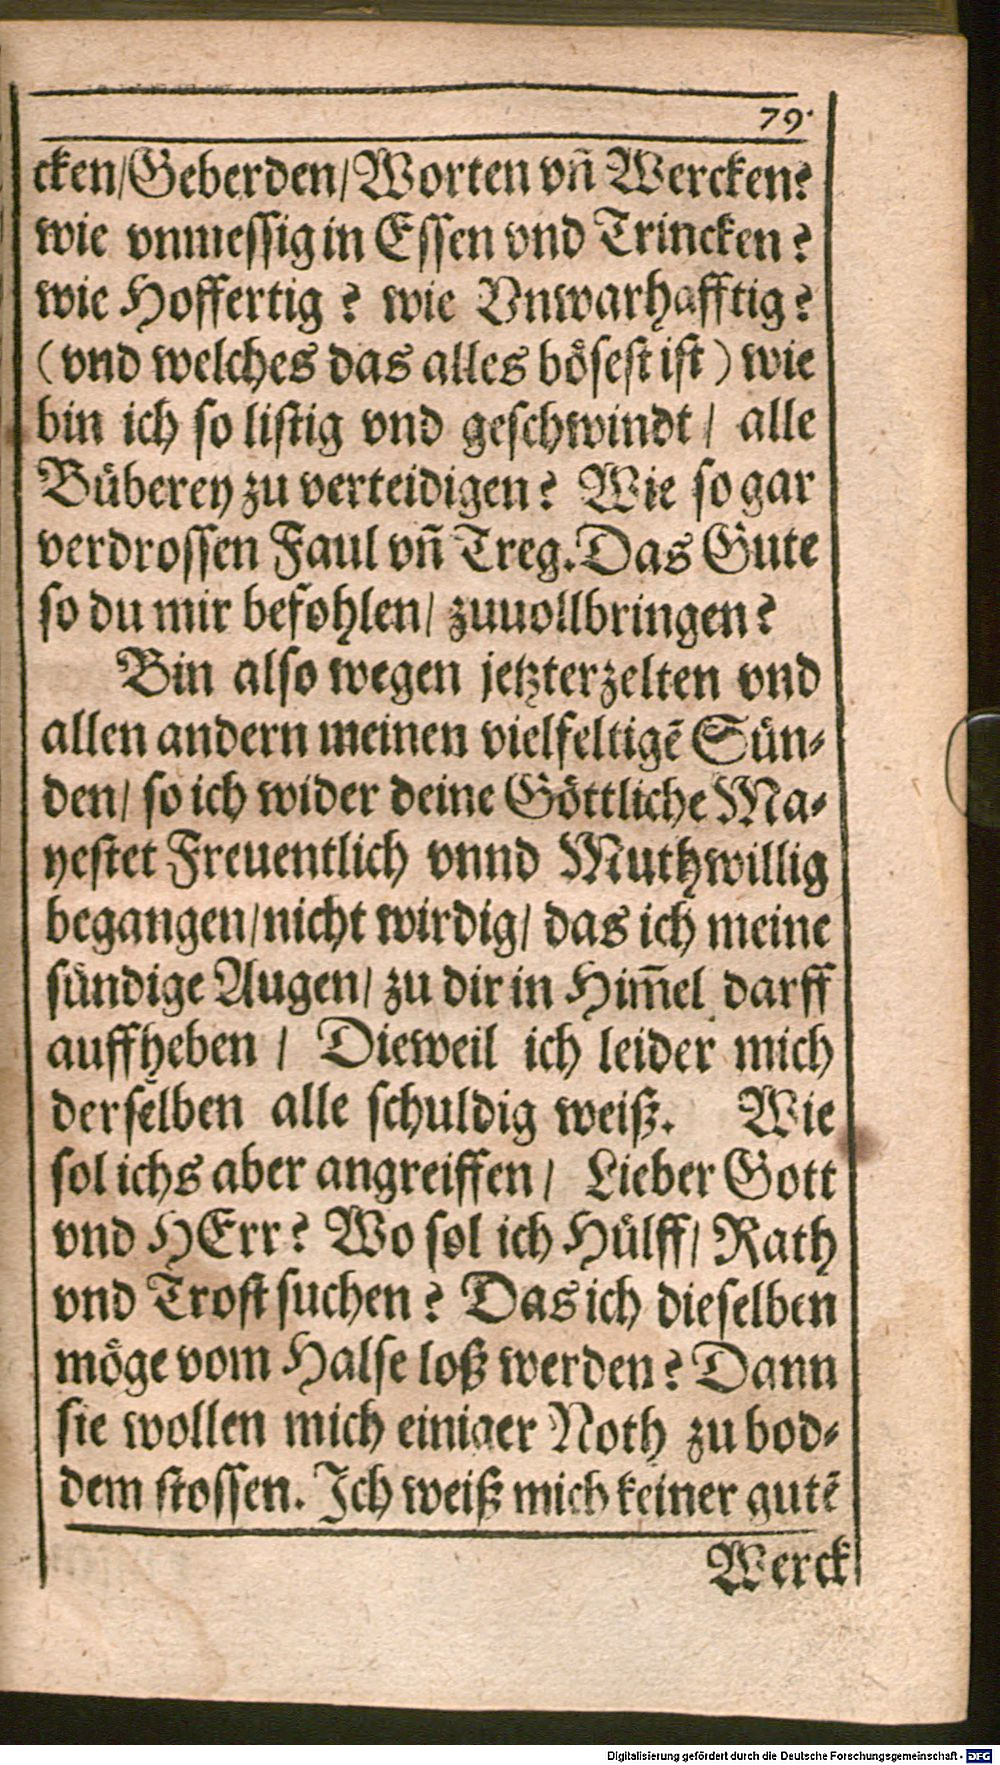 79.
cken/Geberden/Worten vñ Wercken?
wie vnmessig in Essen vnd Trincken?
wie Hoffertig? wie Vnwarhafftig?
(vnd welches das alles bösest ist) wie
bin ich so listig vnd geschwindt/ alle
Büberey zu verteidigen? Wie so gar
verdrossen Faul vñ Treg. Das Gute
so du mir befohlen/ zuuollbringen?
Bin also wegen jetzterzelten vnd
allen andern meinen vielfeltigē Sün-
den/ so ich wider deine Göttliche Ma-
yestet Freuentlich vnnd Muthwillig
begangen/nicht wirdig/ das ich meine
sündige Augen/ zu dir in Him̃el darff
auffheben / Dieweil ich leider mich
derselben alle schuldig weiß. Wie
sol ichs aber angreiffen/ Lieber Gott
vnd HErr? Wo sol ich Hülff/ Rath
vnd Trost suchen? Das ich dieselben
möge vom Halse loß werden? Dann
sie wollen mich einiger Noth zu bod-
dem stossen. Ich weiß mich keiner gutē
Werck
Digitalisierung gefördert durch die Deutsche Forschungsgemeinschaft - DFG